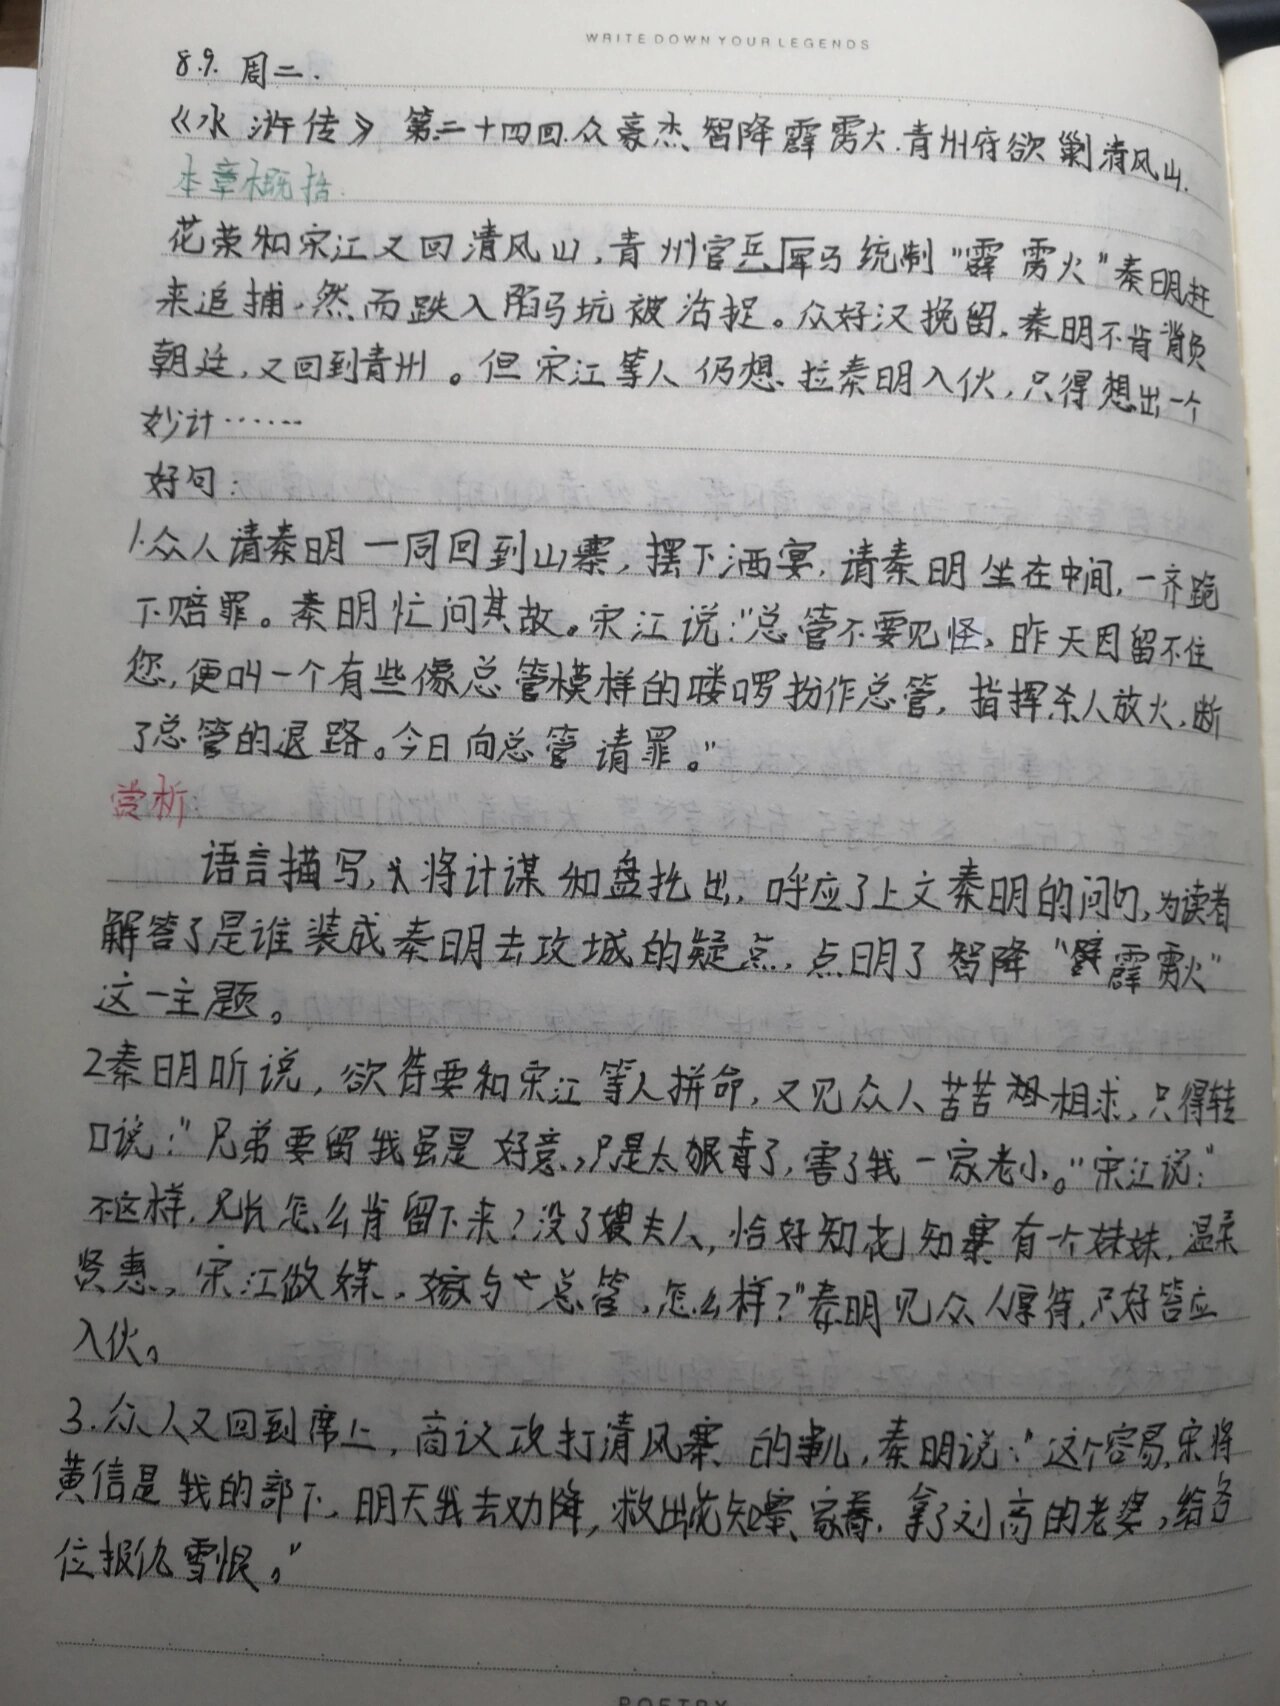 WRITE DOWN YOUR LEGENDS
8.9. 周二.
《水浒传》第二十四回.众豪杰智降霹雳火.青州府欲剿清风山.
本章概括.
花荣和宋江又回清风山,青州官兵军马统制“霹雳火”秦明赶
来追捕,然而跌入陷马坑被活捉。众好汉挽留,秦明不肯背负
朝廷,又回到青州。但宋江等人仍想拉秦明入伙,只得想出一个
妙计······
好句:
1.众人请秦明一同回到山寨,摆下酒宴,请秦明坐在中间,一齐跪
下赔罪。秦明忙问其故。宋江说:“总管不要见怪,昨天因留不住
您,便叫一个有些像总管模样的喽啰扮作总管,指挥杀人放火,断
了总管的退路。今日向总管请罪。”
赏析
语言描写,将计谋和盘托出,呼应了上文秦明的问句,为读者
解答了是谁装成秦明去攻城的疑点,点明了智降“霹雳火”
这一主题。
2秦明听说,欲待要和宋江等人拼命,又见众人苦苦相求,只得转
口说:“兄弟要留我虽是好意,只是太狠毒了,害了我一家老小。”宋江说:“
不这样,兄长怎么肯留下来?没了嫂夫人,恰好知花知寨有一个妹妹,温柔
贤惠,宋江做媒,嫁与总管,怎么样?”秦明见众人厚待,只好答应
入伙。
3.众人又回到席上,商议攻打清风寨的事儿,秦明说:“这个容易,宋将
黄信是我的部下,明天我去劝降,救出花知寨家眷,拿了刘高的老婆,给各
位报仇雪恨。”
POETRY